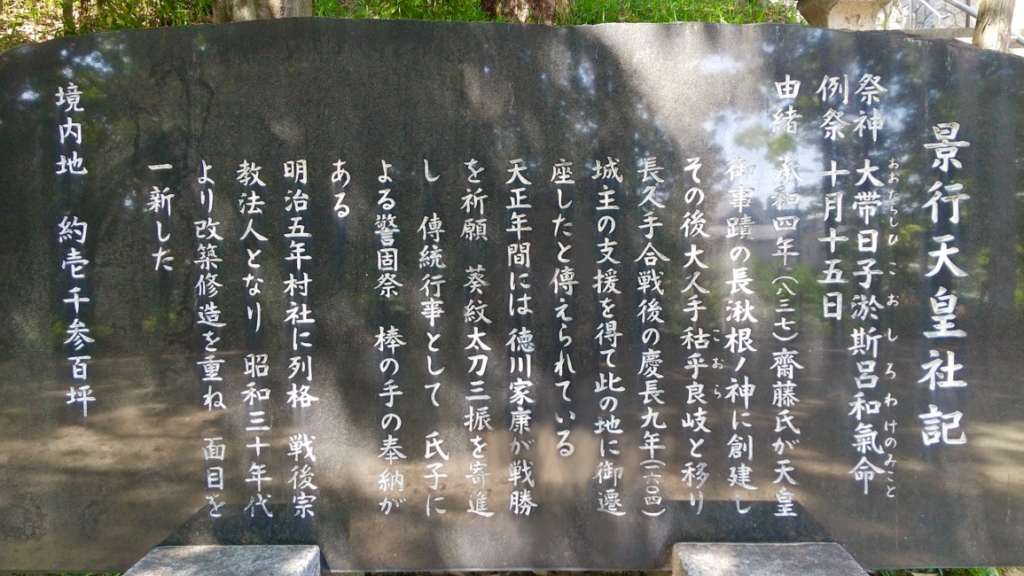 景行天皇社記
祭神 大帯日子淤斯呂和氣命
おおたらしひこおしろわけのみこと
例祭 十月十五日
由緒 承和四年(八三七)齋藤氏が天皇
御事蹟の長湫根ノ神に創建し
その後大久手秥乎良岐と移り
こおら
長久手合戦後の慶長九年(一六〇四)
城主の支援を得て此の地に御遷
座したと傳えられている
天正年間には徳川家康が戦勝
を祈願 葵紋太刀三振を寄進
し 傳統行事として 氏子に
よる警固祭 棒の手の奉納が
ある
明治五年村社に列格 戦後宗
教法人となり 昭和三十年代
より改築修造を重ね 面目を
一新した
境内地 約壱千参百坪